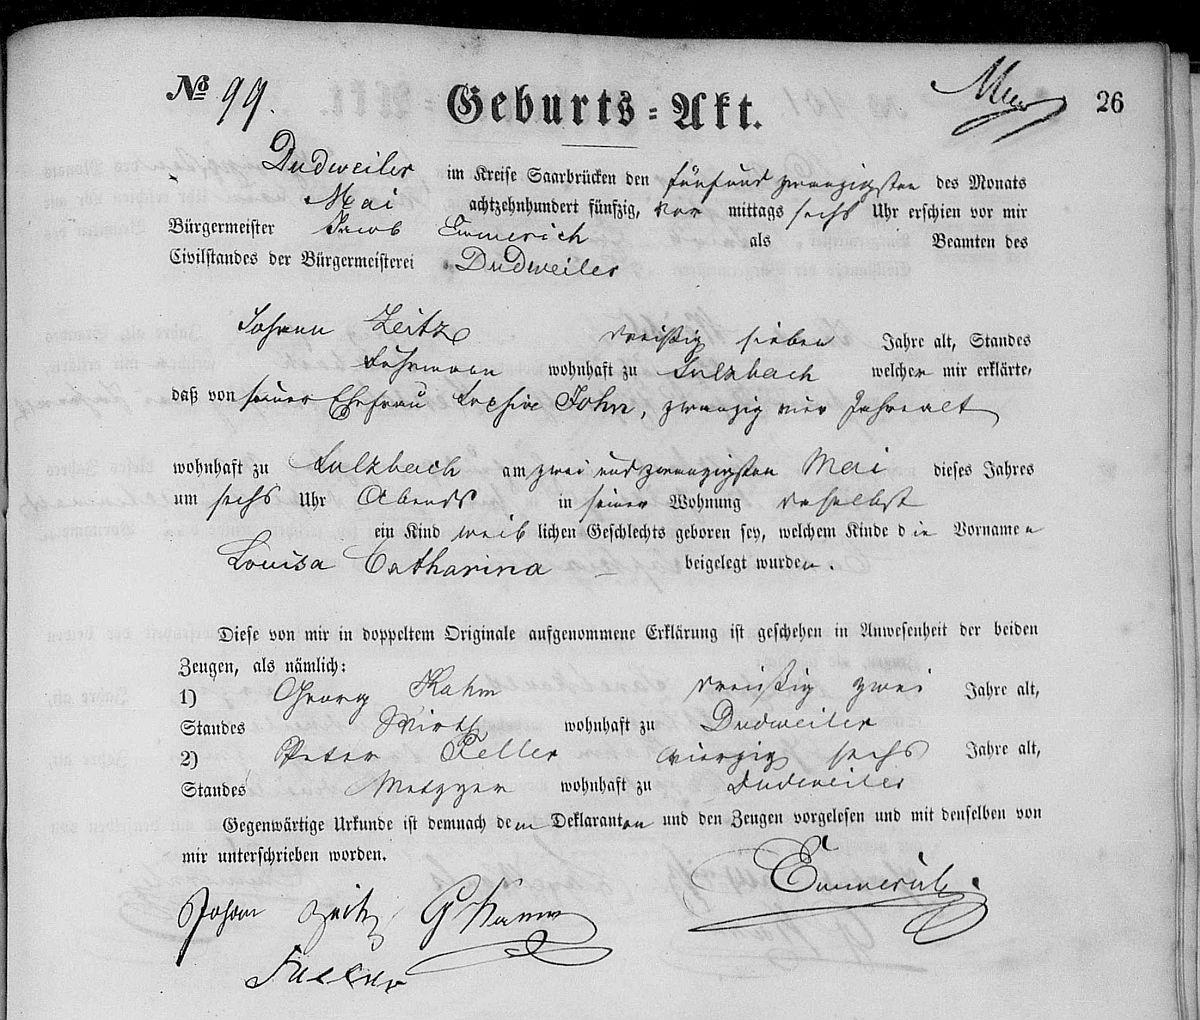 № 99. Geburts=Akt. 26
Dudweiler im Kreise Saarbrücken den fünfund zwanzigsten des Monats
Mai achtzehnhundert fünfzig, vor mittags sechs Uhr erschien vor mir
Bürgermeister Jacob Emmerich als Beamten des
Civilstandes der Bürgermeisterei Dudweiler
Johann Zeitz dreißig sieben Jahre alt, Standes
Fuhrmann wohnhaft zu Sulzbach welcher mir erklärte,
daß von seiner Ehefrau Sophia John, zwanzig vier Jahre alt
wohnhaft zu Sulzbach am zwei und zwanzigsten Mai dieses Jahres
um sechs Uhr Abends in seiner Wohnung daselbst
ein Kind weib lichen Geschlechts geboren sey, welchem Kinde die Vornamen
Louisa Catharina beigelegt wurden.
Diese von mir in doppeltem Originale aufgenommene Erklärung ist geschehen in Anwesenheit der beiden
Zeugen, als nämlich:
1) Georg Kahm dreißig zwei Jahre alt,
Standes Wirth wohnhaft zu Dudweiler
2) Peter Feller vierzig sechs Jahre alt,
Standes Metzger wohnhaft zu Dudweiler
Gegenwärtige Urkunde ist demnach dem Deklaranten und den Zeugen vorgelesen und mit denselben von
mir unterschrieben worden.
Emmerich.
Johann Zeitz G Kamm
Feller